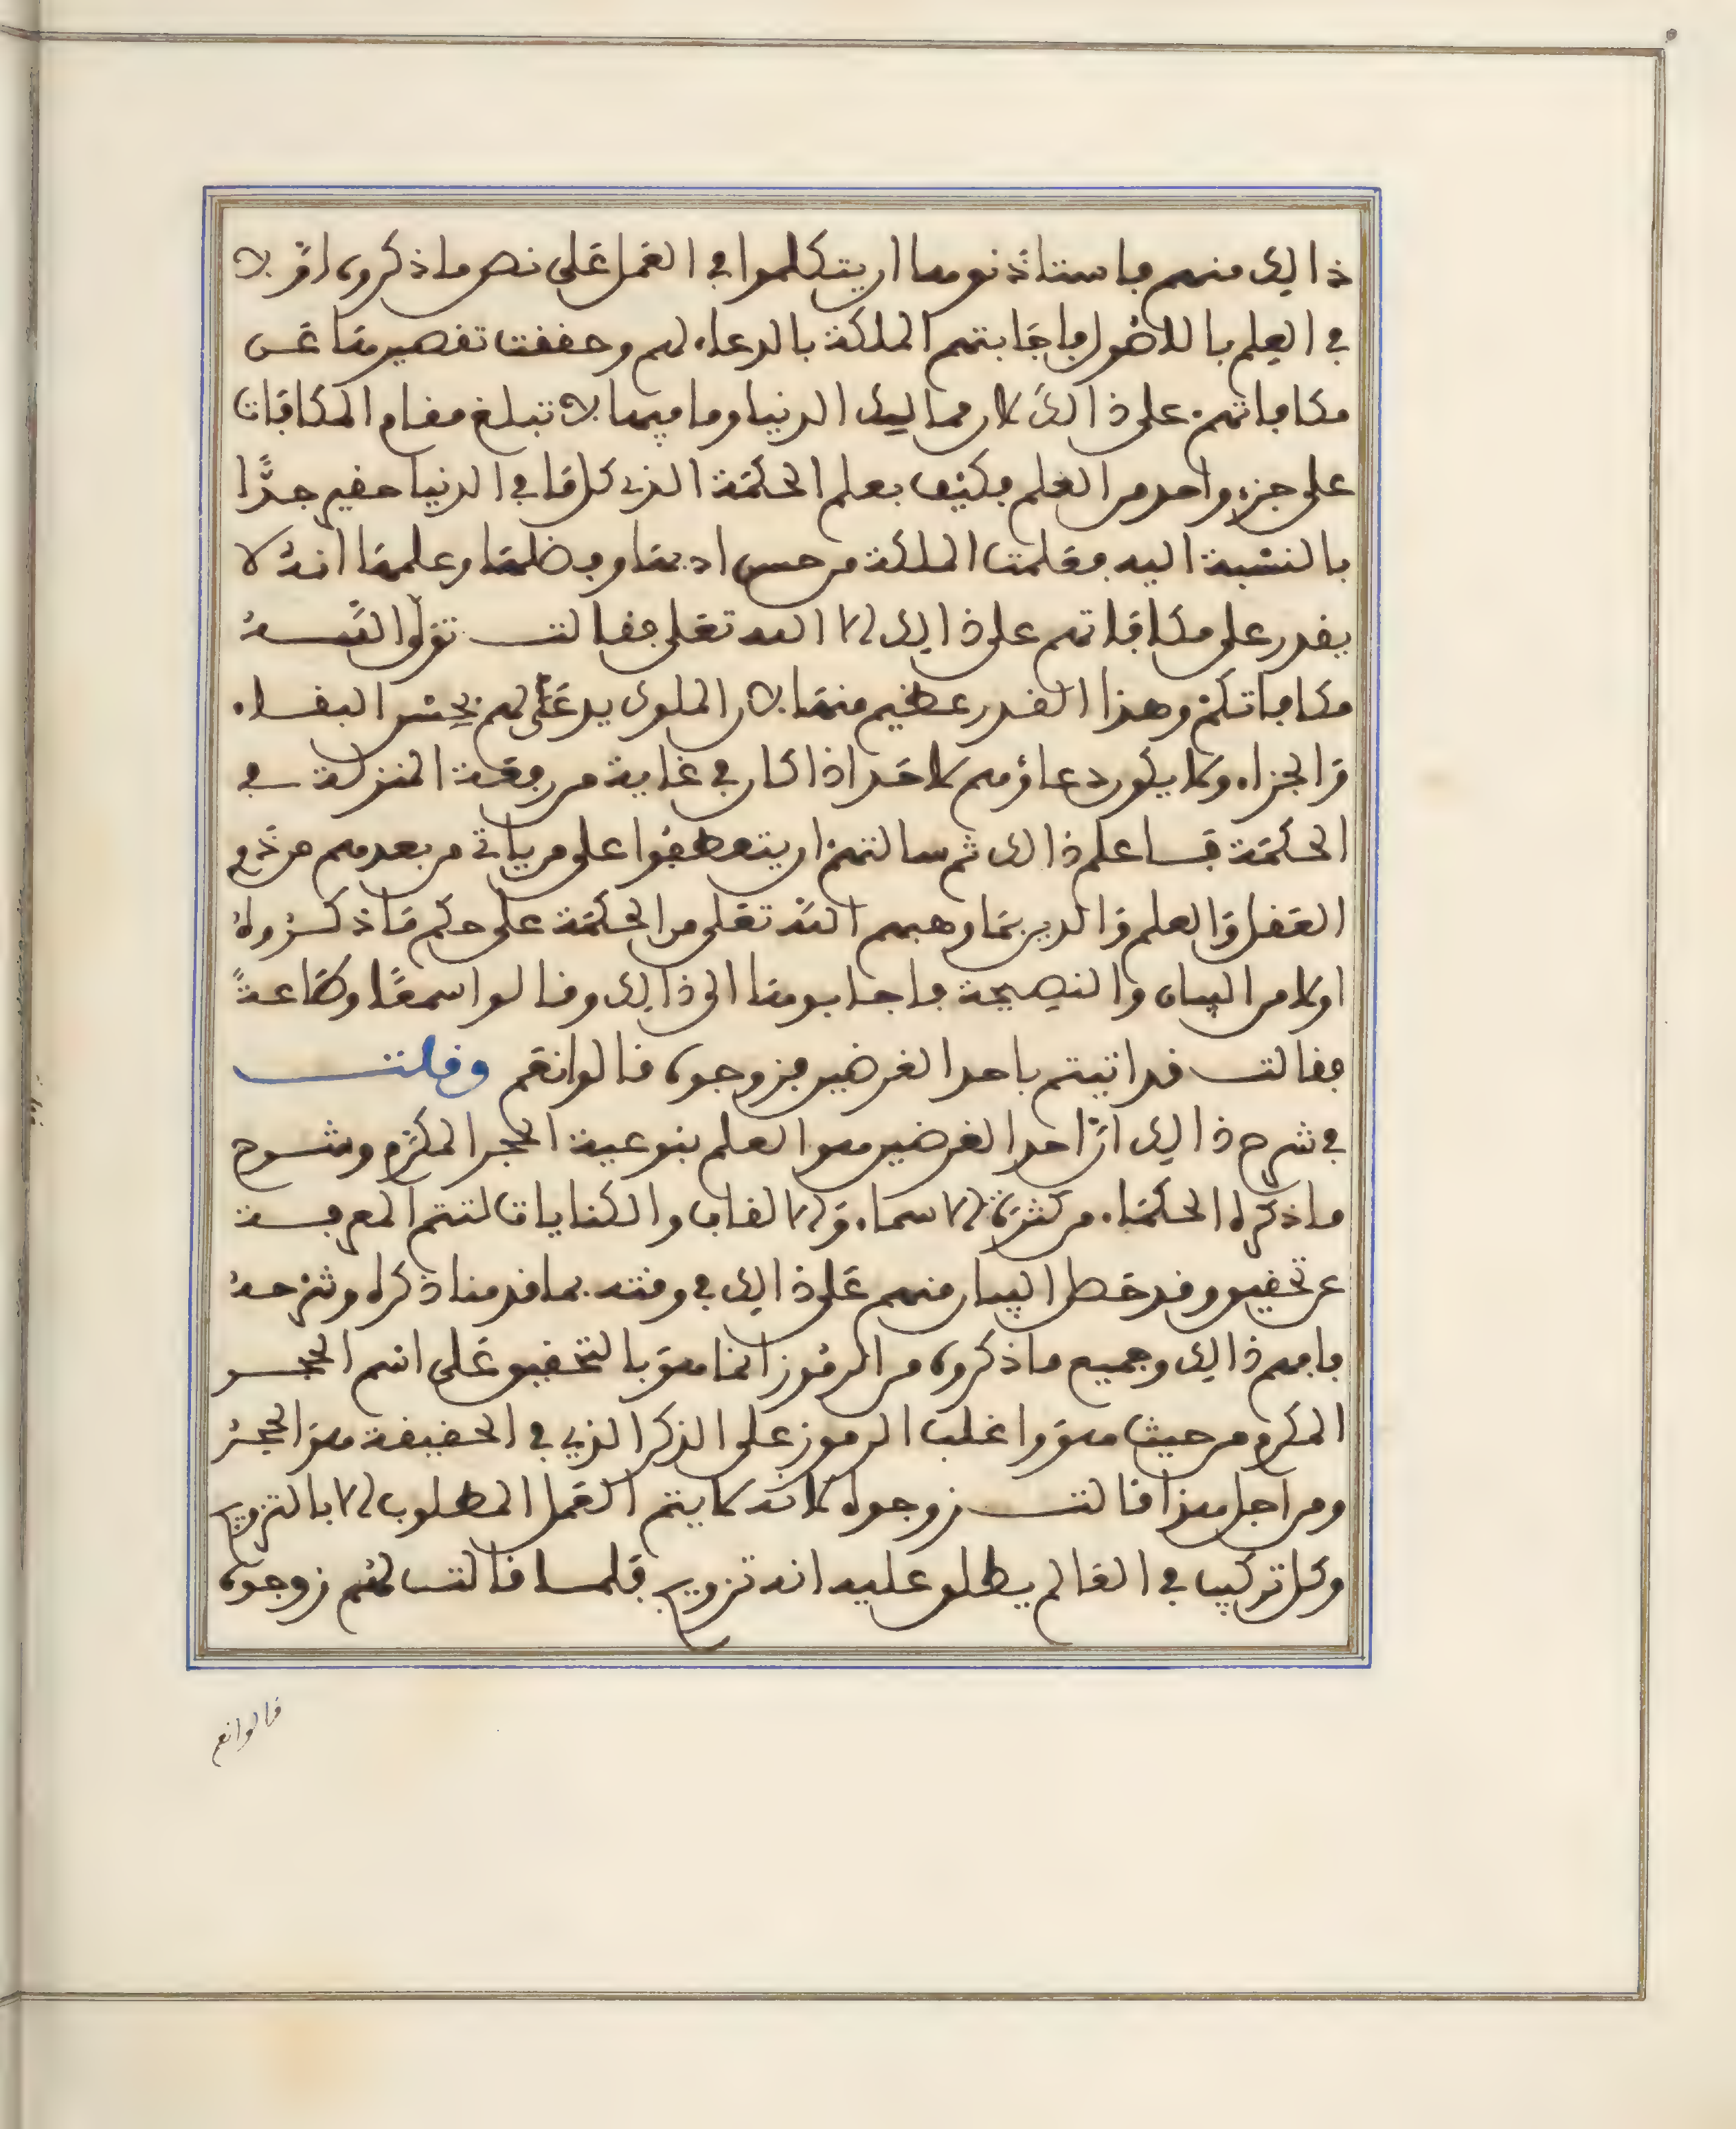 ذالك منهم فاستاذنوها ان يتكلموا في العمل على نص ما ذكروه اولا
في العلم بالاصول فاجابتهم الملكة بالدعاء لهم وحققت تقصيرها عن
مكافاتهم على ذالك لان ممالك الدنيا وما فيها لا تبلغ مقام المكافات
على جزء واحد من العلم فكيف بعلم الحكمة الذي كل ما في الدنيا حقير جدًّا
بالنسبة اليه فعلمت الملكة من حسن ادبها وفضلها وعلمها انه لا
يقدر على مكافاتهم على ذالك الا الله تعلى فقالت تولّوا الله
مكافاتكم وهذا القدر عظيم منها لان الملوك يدعى لهم بحسن البقاء
والجزاء ولا يكون دعاؤهم لاحد الا اذا كان في غاية من رفعة المنزلة في
الحكمة فاعلم ذالك ثم سالتهم ان يتعطفوا على من ياتي من بعدهم من ذوي
العقل والعلم والدين بما وهبهم الله تعلى من الحكمة على حكم ما ذكروه
اولا من البيان والنصيحة فاجابوها الى ذالك وقالوا سمعًا وطاعةً
فقالت قد اتيتم باحد الغرضين فزوجوه قالوا نعم وقلت
في شرح ذالك انّ احد الغرضين هو العلم بنوعية الحجر المكرّم وشرح
ما ذكره الحكماء من كثرة الاسماء والالقاب والكنايات لتتم المعرفة
عن تحقيق وقد حصل البيان منهم على ذالك في وقته بما قدمنا ذكره وشرحه
فافهم ذالك وجميع ما ذكروه من الرموز انما هو بالتحقيق على اسم الحجر
المكرم من حيث هو واغلب الرموز على الذكر الذي في الحقيقة هو الحجر
ومن اجل هذا قالت زوجوه لانه لا يتم العمل المطلوب الا بالتزويج
وكل تركيب في العالم يطلق عليه انه تزويج فلما قالت لهم زوجوه
قالوا نعم